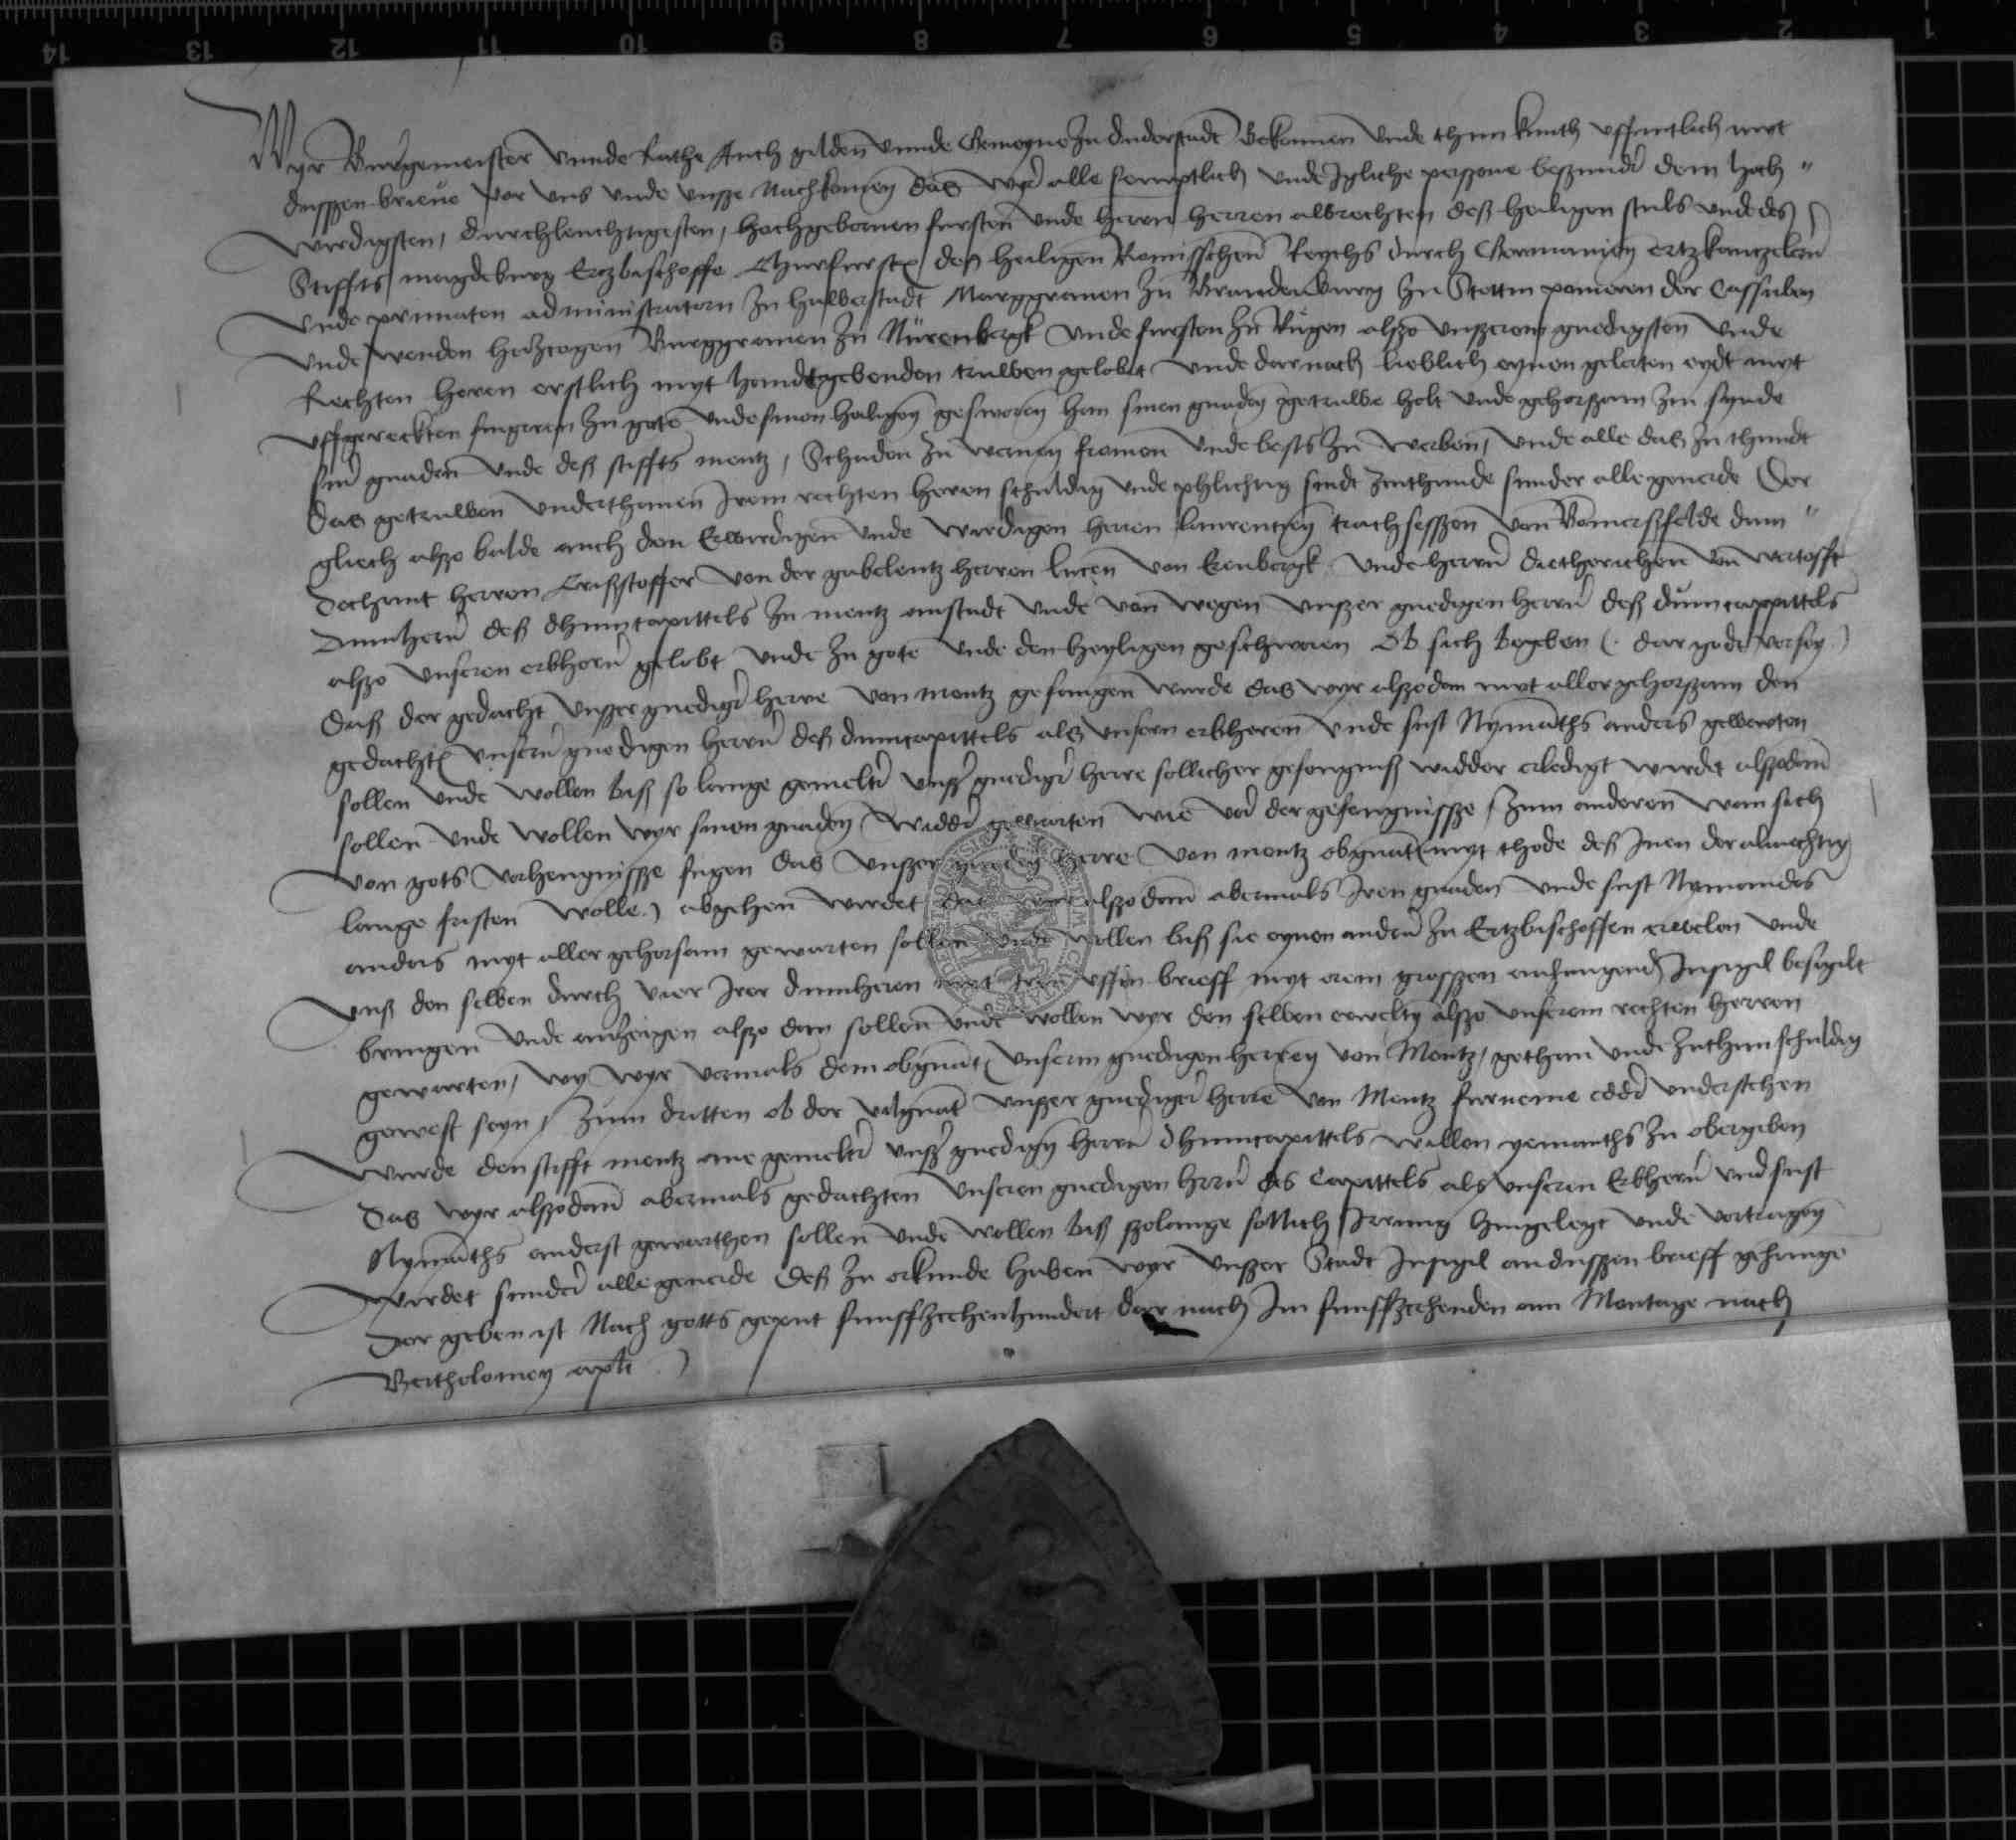 Wyr Burgemeister unnde Rathe Auch gilden unnde Gemeyne zu duderstadt Bekennen unde thun kunth uffentlich myt
dusszen brieve vor uns unde unsze nachkomen das wyr alle semptlich unde Igliche perszone beszundr dem hoch"
wirdigsten, durchleuchtigesten, hochgebornen fursten unde herrn herren albrechten deß heiligen stuls unde des
Stiffts magdeburg Ertzbischoffe Churfurste deß heiligen Romisschenn Reychs durch Germanien ertzkantzelern
unde primaten administratorn zu halberstadt Marggrauen zu Brandenburg zu Stettin pomeren der Cassuben
unde wenden hertzogen Burggrauen zu Nürenbergk unde fursten zu Rugen alszo unszerem gnedigsten unde
Rechten heren erstlich myt handtgebenden truwen gelobt unde dar nach lieblich eynen gelerten eydt myt
uffgereckten fingeren zu gote unde sinen heiligen gesworen han sinen gnaden getruwe holt unde gehorszam zu synde
sinr gnaden unde deß stiffts mentz, Schaden zu warnen fromen unde bests zu werben, unde alle das zu thundt
das getruwen underthanen Irem rechten heren schuldig unde phlichtig sindt zuthunde sunder alle generde Der
gliech alszo balde auch den Erwirdigen unde wirdigen herren laurentzen truchseszen von Bomerszfelde dum"
dechant herren Cristoffer von der gabelentz herren lucen von Erenbergk unde herrn dietherichen von wertofft
dumhern deß dhumcapittels zu mentz anstadt unde von wegen unszer gnedigen herrn deß dumcappittels
alszo unseren erbhern gelobt unde zu gote unde den heyligen geschworen Ob sich begeben (. dar godt vorsey .)
daß der gedacht unszer gnedigr herre von mentz gefangen wurde das wyr alszodan myt aller gehorszam den
gedachte unsern gnedigen herrn deß dumcapittels als unsern erbheren unde sust Nymaths anders gewarten
sollen unde wollen biß so lange gemeltr unszr gnedigr herre sollicher gefengniß widder erledigt wirdet alszodann
sollen unde wollen wyr sinen gnaden widdr gewarten wie vor der gefengnissze, Zum anderen wan sich
von gots vorhengnissze fugen das unszer gnedig herre von mentz obgnant myt thode deß Inen der almechtig
lange fristen wolle.) abgehen wirdet das wyr alszodann abermals Iren gnaden unde sust Nymandes
anders myt aller gehorsam gewarten sollen unde wollen biß sie eynen andern zu Ertzbischoffen erwelen unde
unß den selben durch vier Irer dumheren myt Irem uffin brieff myt erem groszen anhangend Insigil besigilt
brengen unde anzeigen alszo dan sollen unde wollen wyr den selben erwelten alszo unserem rechten herren
gewarten, wy wyr vormals dem obgnant unserm gnedigen herren von Mentz, gethan unde zuthun schuldig
gewest seyn, Zum dritten ob der vilgnant unszer gnediger herre von Mentz furneme eddr understehen
wurde den stifft mentz ane gemeltr unszr gnedigen herrn dhumcapittels willen yemanths zu obergeben
das wyr alszodann abermals gedachten unseren gnedigen herrn des Capittels als unseren Erbhern und sust
Nymaths anderst gewarthen sollen unde wollen biß szolange sollich Irrung hingelegt unde vortragen
wirdet sunder alle generde Deß zu orkunde haben wyr unszer Stadt Insigil an dusszen brieff gehange
Der geben ist Nach gotts geput funffzcehenhundert dar nach Im funffzcehenden am Montage nach
Bartholomey apli .)